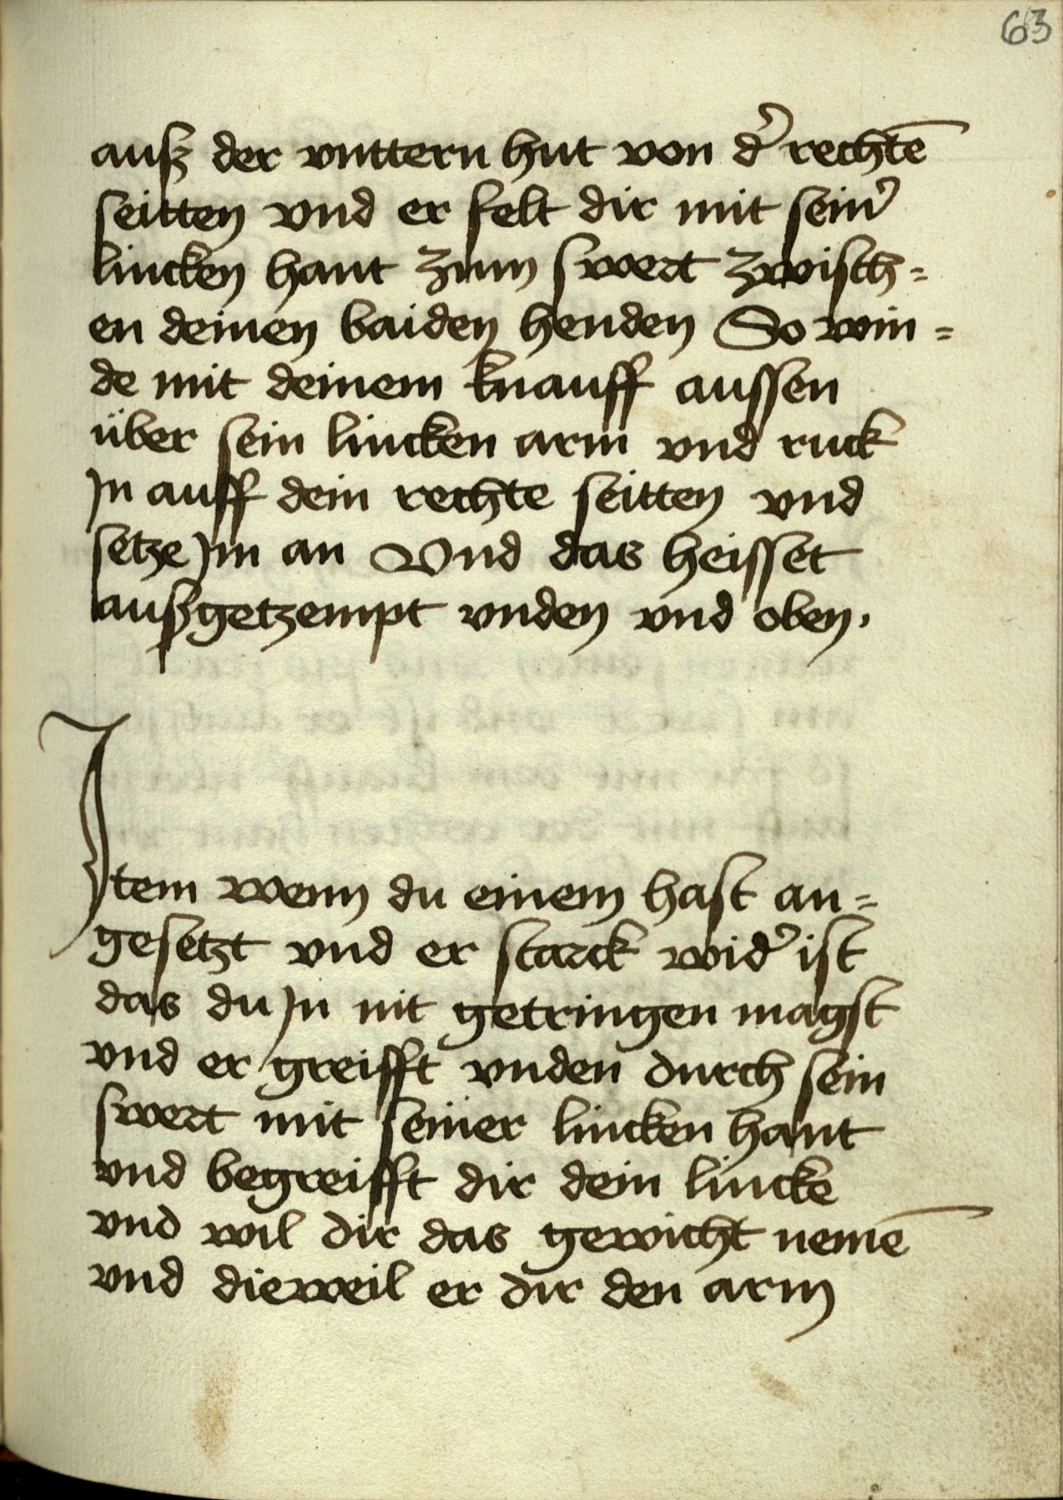 63
auß der vnttern hut von d' rechtē
seitten vnd er felt dir mit sein'
lincken hant zum swert zwisch=
en deinen baiden henden So win=
de mit deinem knauff aussen
über sein lincken arm vnd ruck
Jn auff dein rechte seitten vnd
setze Jm an Vnd das heisset
außgetzempt vnden vnd oben.
Jtem wenn du einem hast an=
gesetzt vnd er starck wid' ist
das du Jn nit getringen magst
vnd er greifft vnden durch sein
swert mit seiner lincken hant
vnd begreifft dir dein lincke
vnd wil dir das gewicht nemē
vnd dieweil er dir den arm